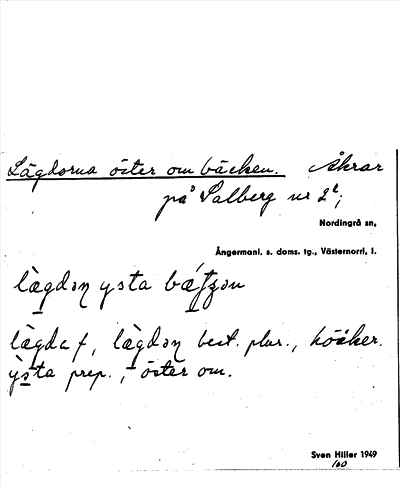 Lägdorna öster om bäcken. Åkrar
på Salberg nr 2²;
Nordingrå sn,
Ångermanl. s. doms. tg., Västernorrl. l.
lägdən ysta
lägda f, lägdən best. plur.,
ysta prep., öster om.
Sven Hiller 1949
160